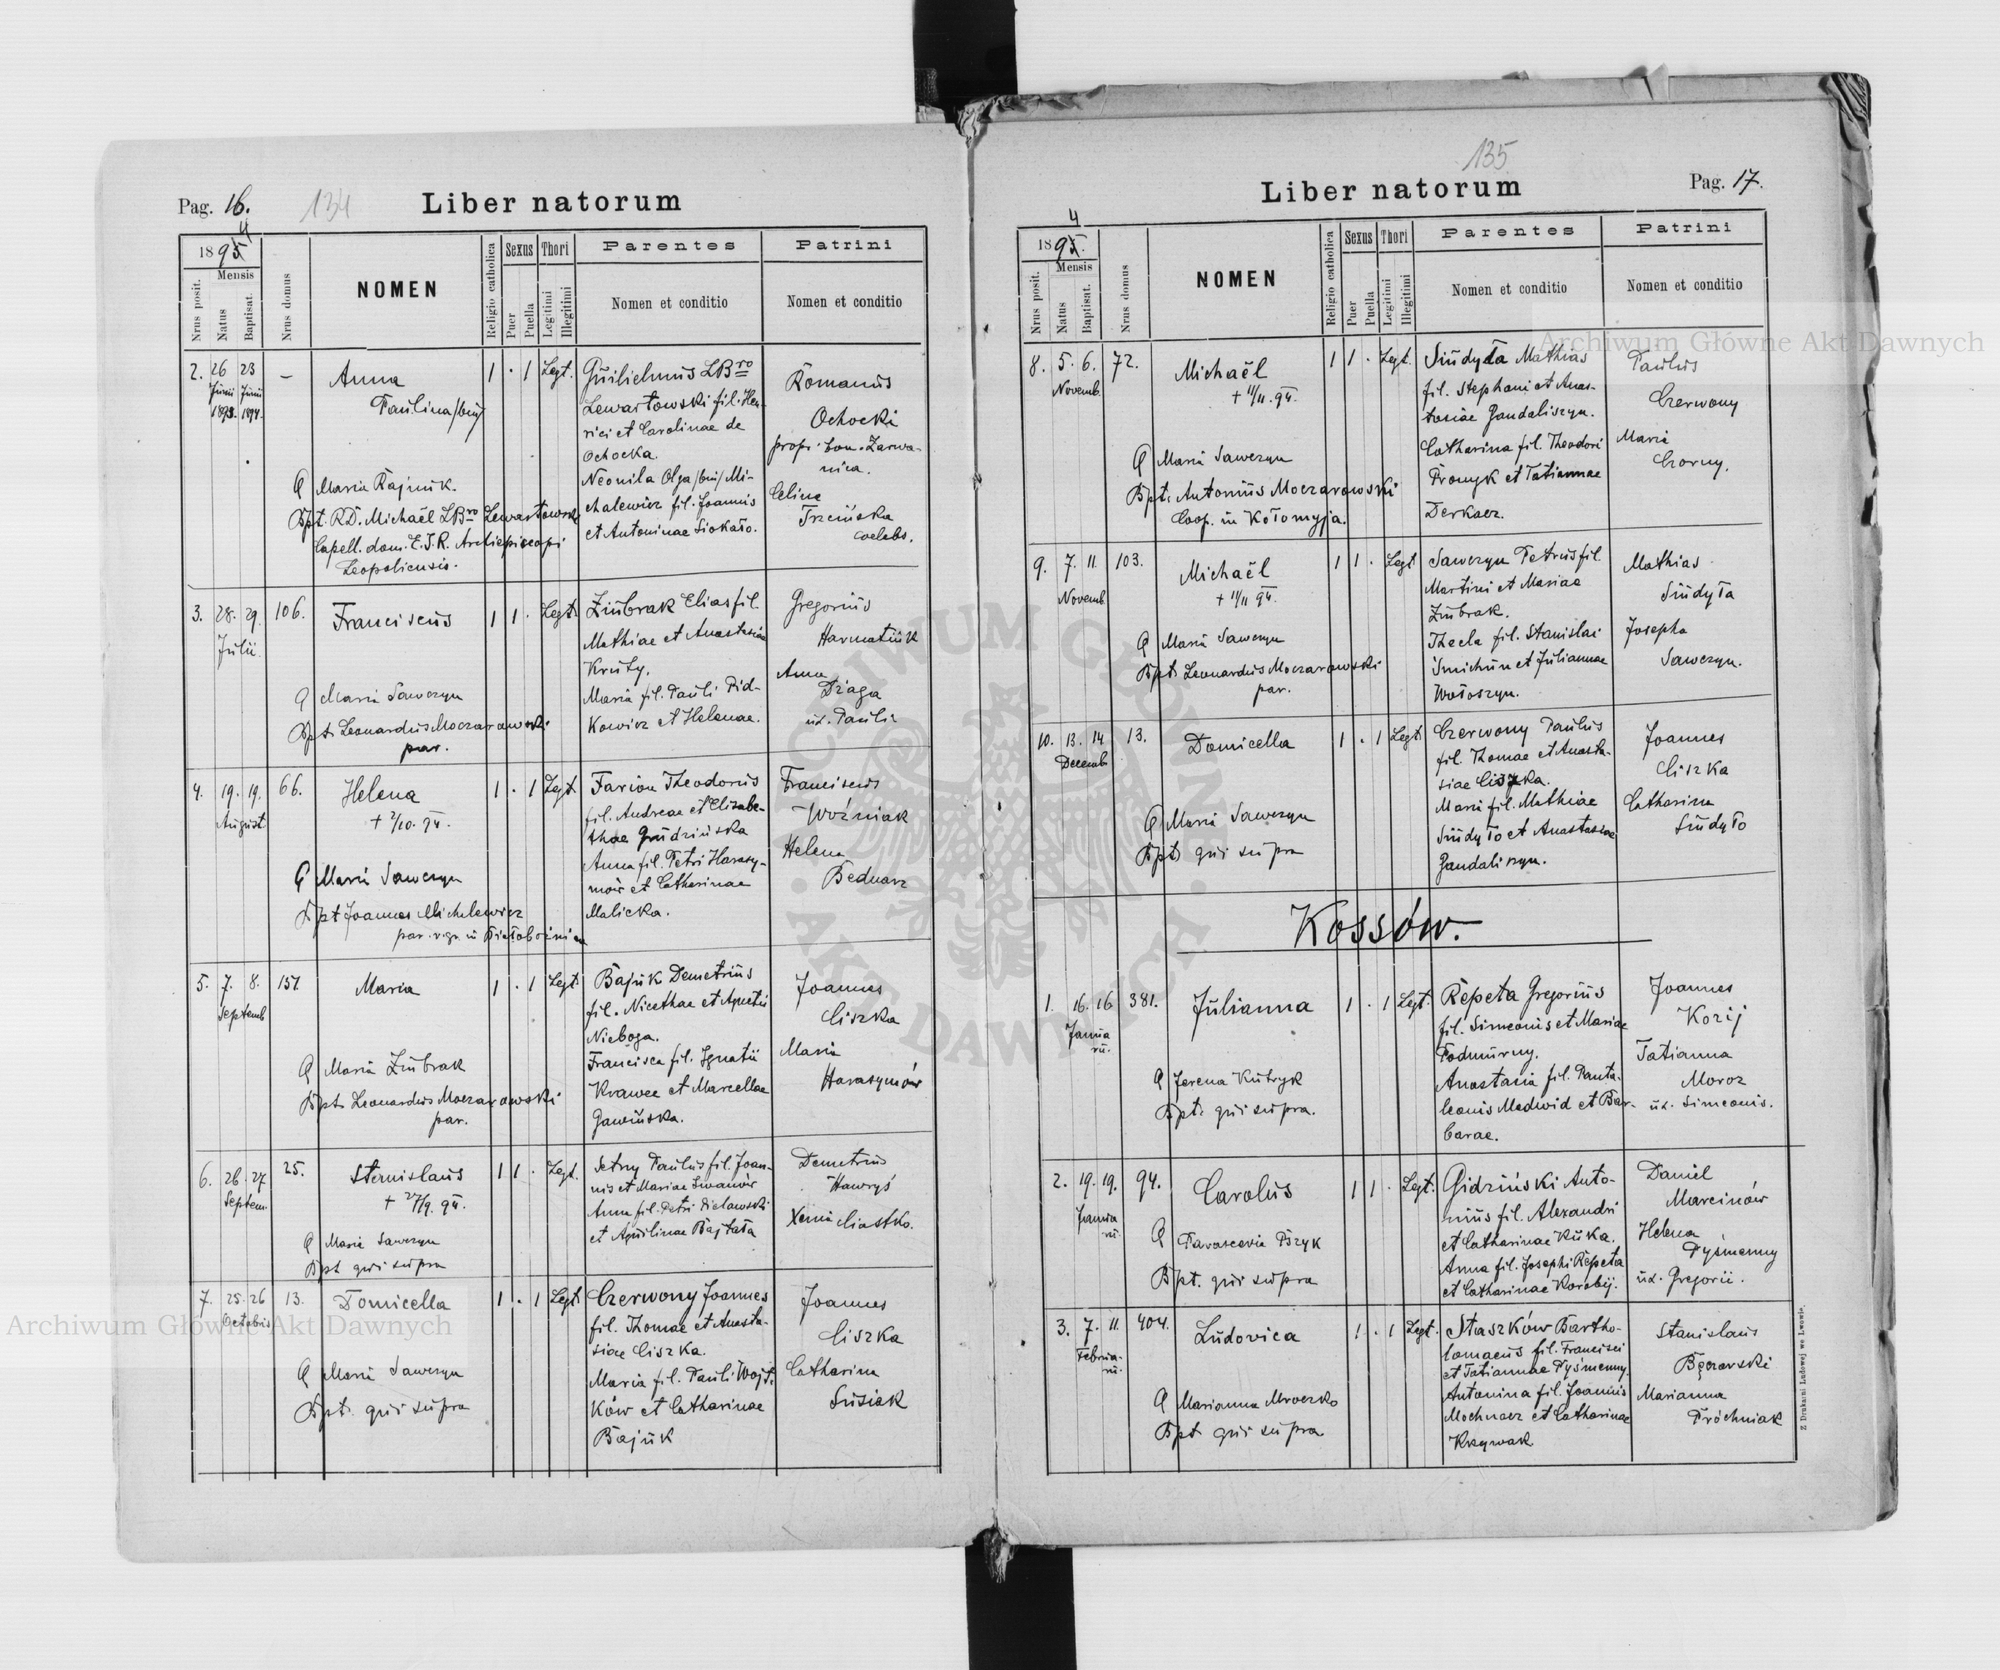 Pag. 16.
134
Liber natorum
1895
4
Mensis
Nrus posit.
Natus
Baptisat.
Nrus domus
NOMEN
Religio catholica
Sexus
Puer
Puella
Thori
Legitimi
Illegitimi
Parentes
Nomen et conditio
Patrini
Nomen et conditio
2. 26 23 —
Junii Junii
1893. 1894.
Anna
Paulina /bin/
1 . 1 Legt.
Guilielmus LBro
Lewartowski fil. Hen-
rici et Carolinae de
Ochocka.
Neonila Olga /bin/ Mi-
chalewicz fil. Joannis
et Antoninae Siokało.
Romanus
Ochocki
propr. bon. Zarwa-
nica.
Celina
Trzcińska
coelebs.
Maria Rajnuk.
Bpt. R.D. Michaël LBro Lewartowski
Capell. dom. E.J.R. Archiepiscopi
Leopoliensis.
3. 28. 29. 106.
Julii
Franciscus
1 1 . Legt.
Zubrak Elias fil.
Mathiae et Anastasiae
Kruty.
Maria fil. Pauli Pid-
kowicz et Helenae.
Gregorius
Harmatiuk
Anna
Draga
ux. Pauli
Maria Sawczyn
Bpt. Leonardus Moczarowski
par.
4. 19. 19. 66.
August
Helena
+ 2/10. 94.
1 . 1 Legt
Farion Theodorus
fil. Andreae et Elizabe-
thae Grudzińska
Anna fil. Petri Harasy-
mów et Catharinae
Malicka.
Franciscus
Woźniak
Helena
Bednarz
Maria Sawczyn
Bpt Joannes Michalewicz
par. r.gr. in Białobożnica
5. 7. 8. 151
Septemb
Maria
1 . 1 Legt
Bajuk Demetrius
fil. Nicethae et Agnetis
Nieboga.
Francisca fil. Ignatii
Krawec et Marcellae
Gawińska.
Joannes
Ciszka
Maria
Harasymów
Maria Zubrak
Bpt. Leonardus Moczarowski
par.
6. 26. 27 25.
Septem.
Stanislaus
+ 27/9. 94.
1 1 . Legt.
Setny Paulus fil. Joan-
nis et Mariae Iwanów
Anna fil. Petri Pielawski
et Aquilinae Bajtała
Demetrius
Hawryś
Xenia Ciastko.
Maria Sawczyn
Bpt qui supra
7. 25. 26 13.
Octobris
Domicella
1 . 1 Legt
Czerwony Joannes
fil. Thomae et Anasta-
siae Ciszka.
Maria fil. Pauli Wojt-
ków et Catharinae
Bajuk
Joannes
Ciszka
Catharina
Susiak
Maria Sawczyn
Bpt. qui supra
135
Liber natorum
Pag. 17.
4
1895.
Mensis
Nrus posit.
Natus
Baptisat.
Nrus domus
NOMEN
Religio catholica
Sexus
Puer
Puella
Thori
Legitimi
Illegitimi
Parentes
Nomen et conditio
Patrini
Nomen et conditio
8. 5. 6. 72.
Novemb.
Michaël
+ 11/11. 94.
1 1 . Legt.
Sudyła Mathias
fil. Stephani et Anas-
tasiae Gandaliszyn.
Catharina fil. Theodori
Promyk et Tatiannae
Derkacz.
Paulus
Czerwony
Maria
Czorny.
Maria Sawczyn
Bpt. Antonius Moczarowski
Coop. in Kołomyja.
9. 7. 11. 103.
Novemb.
Michaël
+ 11/11 94.
1 1 . Legt
Sawczyn Petrus fil.
Martini et Mariae
Zubrak.
Thecla fil. Stanislai
Smichun et Juliannae
Wołoszyn.
Mathias
Sudyła
Josepha
Sawczyn.
Maria Sawczyn
Bpt. Leonardus Moczarowski
par.
10. 13. 14 13.
Decemb
Domicella
1 . 1 Legt
Czerwony Paulus
fil. Thomae et Anasta-
siae Ciszka.
Maria fil. Mathiae
Sudyło et Anastasiae
Gandaliszyn.
Joannes
Ciszka
Catharina
Sudyło
Maria Sawczyn
Bpt. qui supra
Kossów.
1. 16. 16 381.
Janua
rii.
Julianna
1 . 1 Legt.
Repeta Gregorius
fil. Simeonis et Mariae
Podmurny.
Anastasia fil. Panta-
leonis Medwid et Bar-
barae.
Joannes
Kozij
Tatianna
Moroz
ux. Simeonis.
Jerena Kutryk
Bpt. qui supra.
2. 19. 19. 94.
Janua
rii.
Carolus
1 1 . Legt.
Gidziński Anto-
nius fil. Alexandri
et Catharinae Kuka.
Anna fil. Josephi Repeta
et Catharinae Korobij.
Daniel
Marcinów
Helena
Pyśmenny
ux. Gregorii.
Parascevia Bzyk
Bpt. qui supra
3. 7. 11. 404.
Februa-
rii.
Ludovica
1 . 1 Legt.
Staszków Bartho-
lomaeus fil. Francisci
et Tatiannae Pyśmenny.
Antonina fil. Joannis
Mochnacz et Catharinae
Krzywak
Stanislaus
Bęczarski
Marianna
Próchniak
Marianna Mroczko
Bpt qui supra
Z Drukarni Ludowej we Lwowie.
Archiwum Główne Akt Dawnych
Archiwum Główne Akt Dawnych
ARCHIWUM GŁÓWNE
AKT DAWNYCH